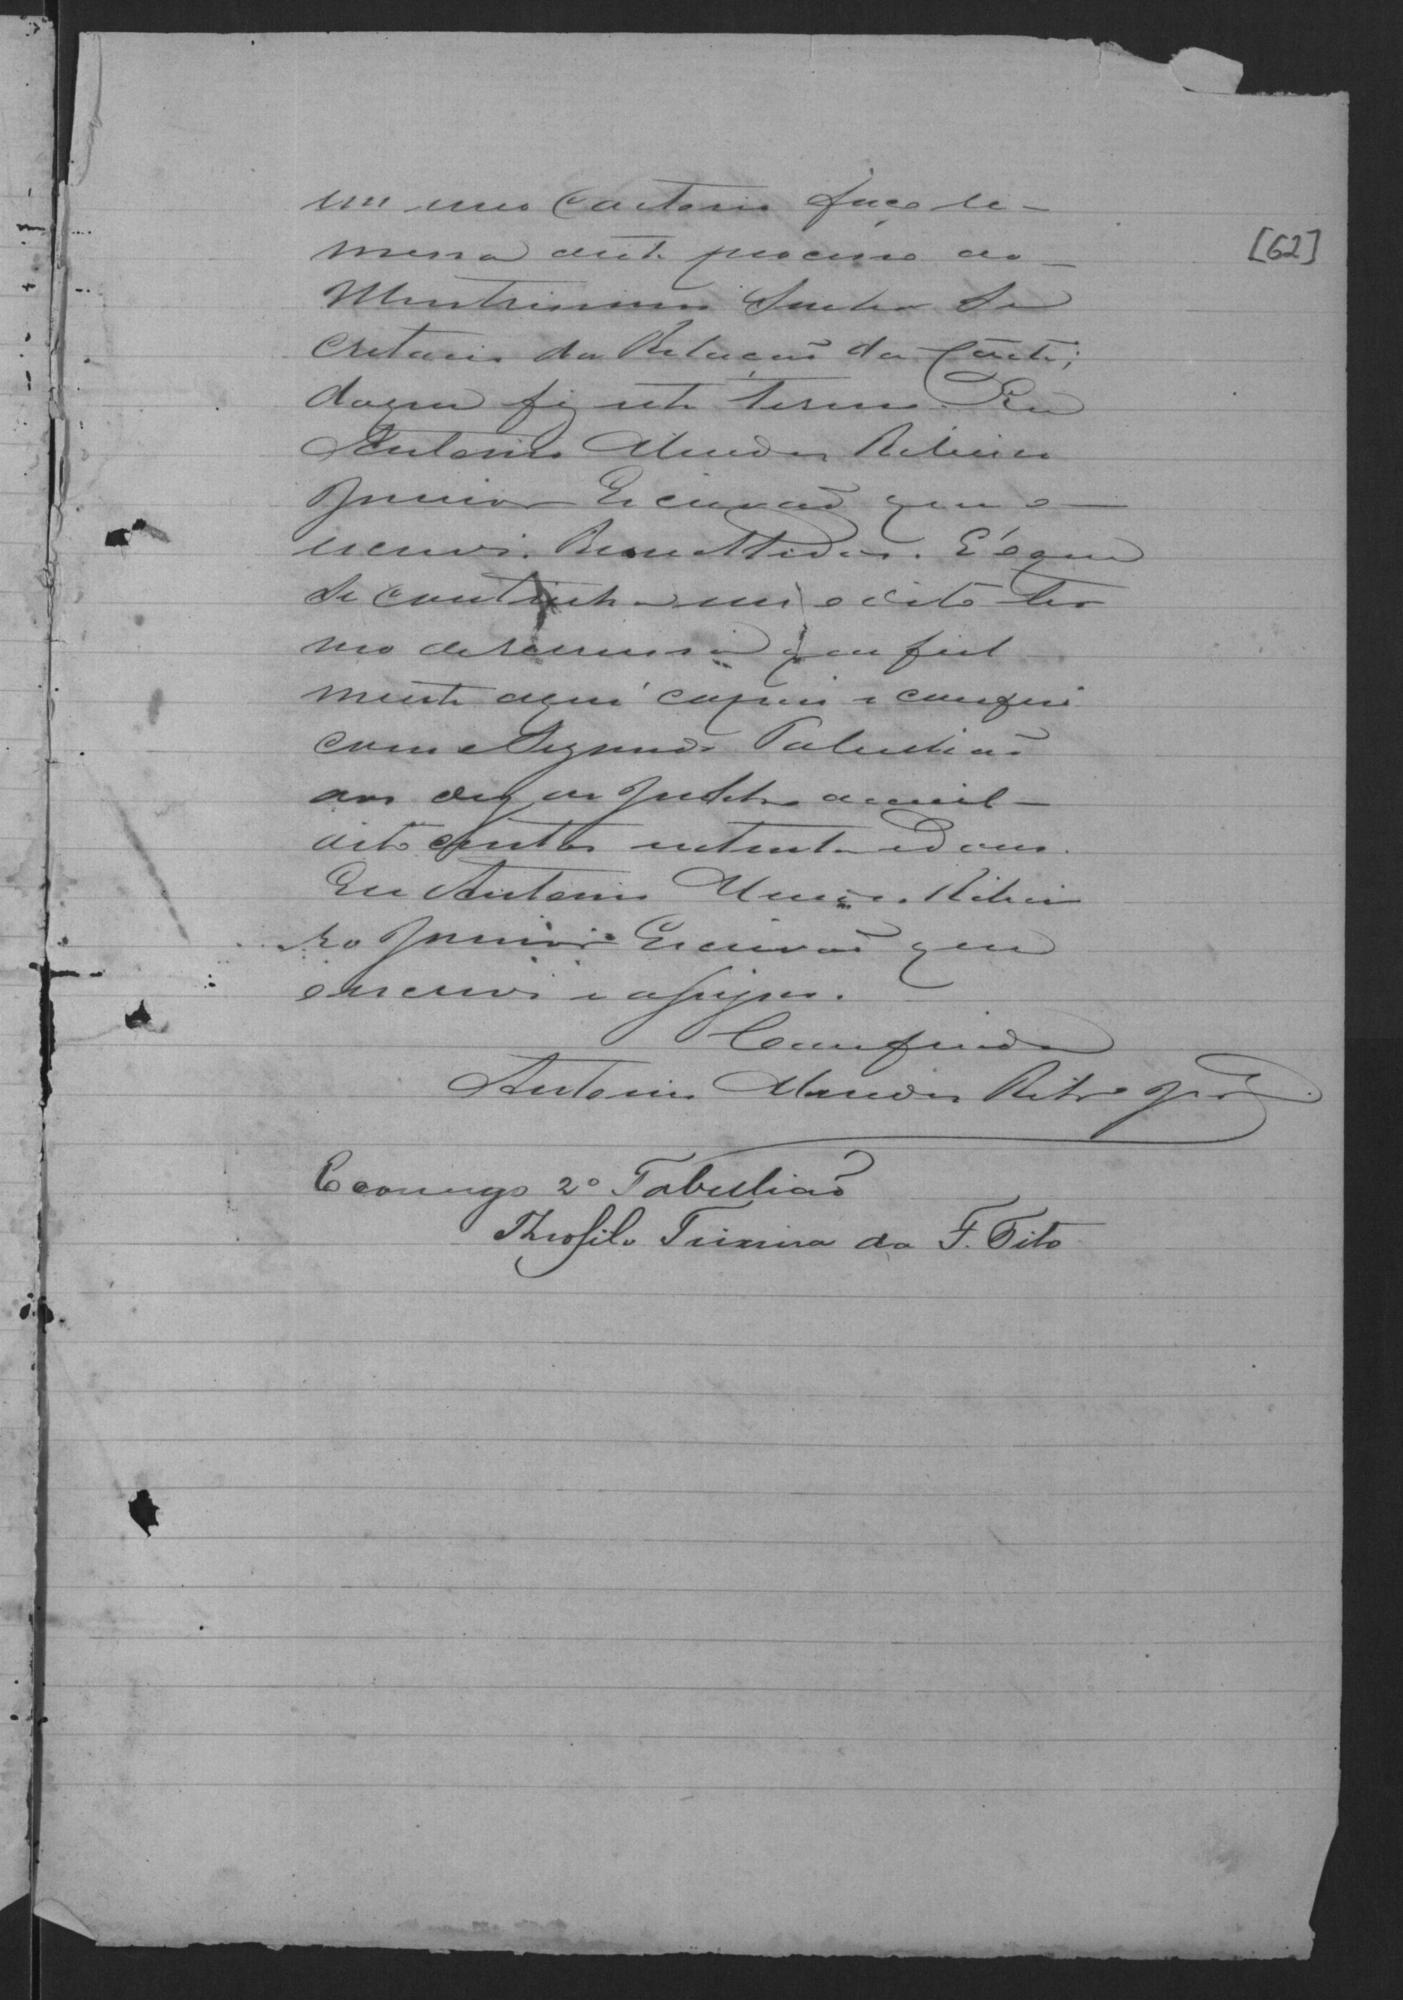 em meo Cartorio faço re-
messa deste processo ao
[62]
Illustrissimo Senhor Se
cretario da Relação da Côrte;
do que fiz este termo. Eu
Antonio Mendes Ribeiro
Junior Escrivão que o
escrevi. Remettidos. É o que
se continha em o dito ter
mo de remessa que fiel
mente aqui copiei e conferi
com o Segundo Tabellião
aos dez de Julho de mil
oito centos setenta e dous.
Eu Antonio Mendes Ribei
ro Junior Escrivão que
o escrevi e assigno.
Conferida
Antonio Mendes Ribro Jor
E comigo 2º Tabellião
Theofilo Teixeira da F. Tito